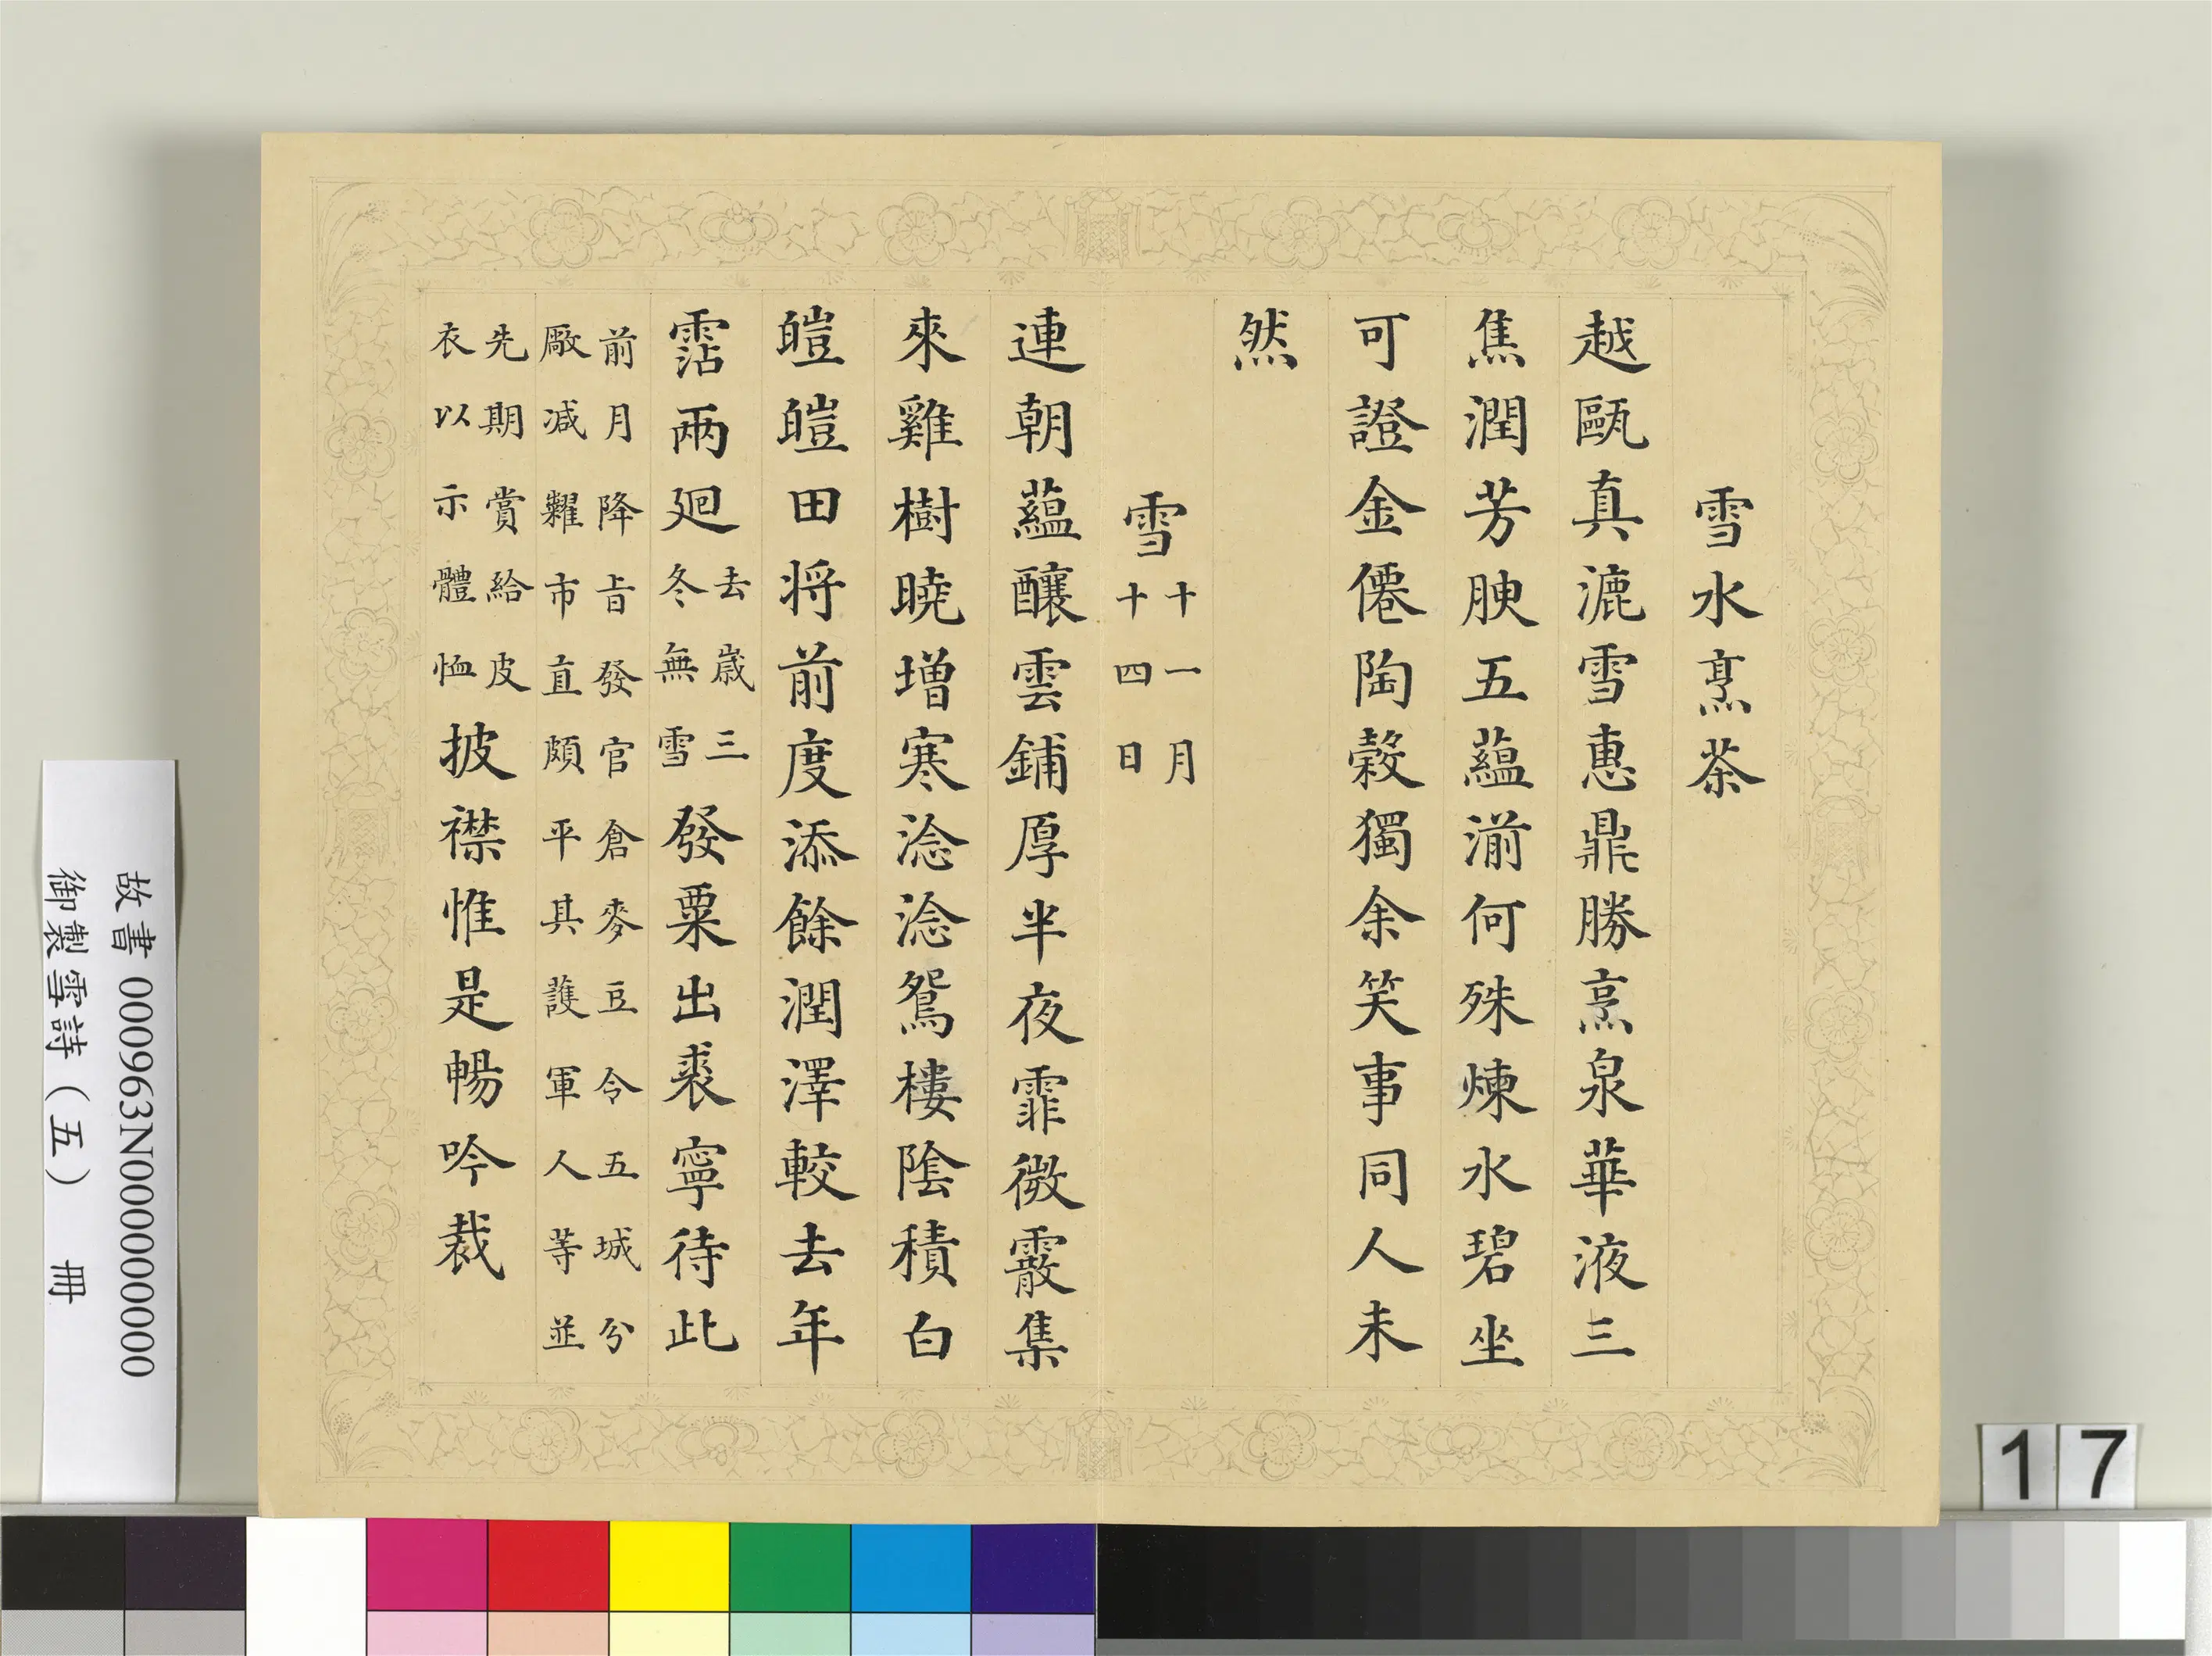 雪水烹茶
越甌真漉雪惠鼎勝烹泉華液三
焦潤芳腴五蘊湔何殊煉水碧坐
可證金僊陶穀獨余笑事同人未
然
雪十一月
十四日
連朝蘊釀雲鋪厚半夜霏微霰集
來雞樹曉增寒淰淰鴛樓陰積白
皚皚田将前度添餘潤澤較去年
霑兩廻去歲三
冬無雪發粟出裘寧待此
前月降旨發官倉麥豆令五城分
厰減糶市直頗平其護軍人等並
先期賞給皮
衣以示體恤披襟惟是暢吟裁
故書 000963N000000000
御製雪詩（五） 冊
17